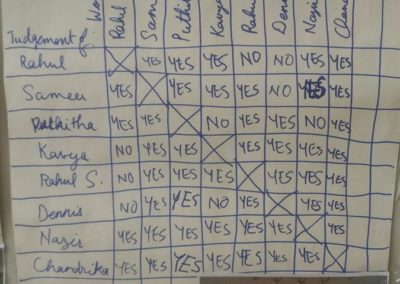 Judgement of: Wo Rahul Sam Puthit Kavya Rahu Denn Nazir Chand
Rahul YES YES YES NO NO YES YES
Sameer YES YES YES YES NO YES YES
Puthitha YES YES NO YES YES NO YES
Kavya NO YES YES YES YES YES YES
Rahul S. NO YES YES YES YES YES YES
Dennis NO YES YES NO YES YES YES
Nazir YES YES YES YES YES YES YES
Chandrika YES YES YES YES YES YES YES